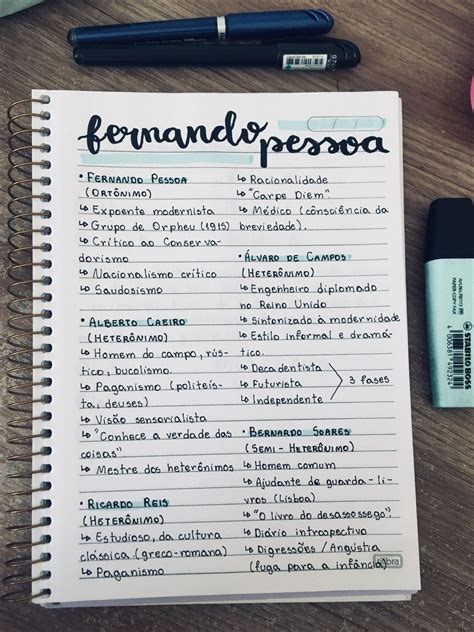 fernando pessoa
• FERNANDO PESSOA
(ORTÔNIMO)
↳ Expoente modernista
↳ Grupo de Orpheu (1915)
↳ Crítico ao Conserva-
dorismo
↳ Nacionalismo crítico
↳ Saudosismo
• ALBERTO CAEIRO
(HETERÔNIMO)
↳ Homem do campo, rús-
tico, bucolismo.
↳ Paganismo (politeís-
ta, deuses)
↳ Visão sensorialista
↳ "Conhece a verdade das
coisas".
↳ Mestre dos heterônimos
• RICARDO REIS
(HETERÔNIMO)
↳ Estudioso, da cultura
clássica (greco-romana)
↳ Paganismo
↳ Racionalidade
↳ "Carpe Diem".
↳ Médico (consciência da
breviedade).
• ÁLVARO DE CAMPOS
(HETERÔNIMO)
↳ Engenheiro diplomado
no Reino Unido
↳ Sintonizado à modernidade
↳ Estilo informal e dramá-
tico.
↳ Decadentista
↳ Futurista
↳ Independente
3 fases
• BERNARDO SOARES
(SEMI-HETERÔNIMO)
↳ Homem comum
↳ Ajudante de guarda-li-
vros (Lisboa)
↳ "O livro do desassossego".
↳ Diário introspectivo
↳ Digressões / Angústia
(fuga para a infância)
STABILO BOSS